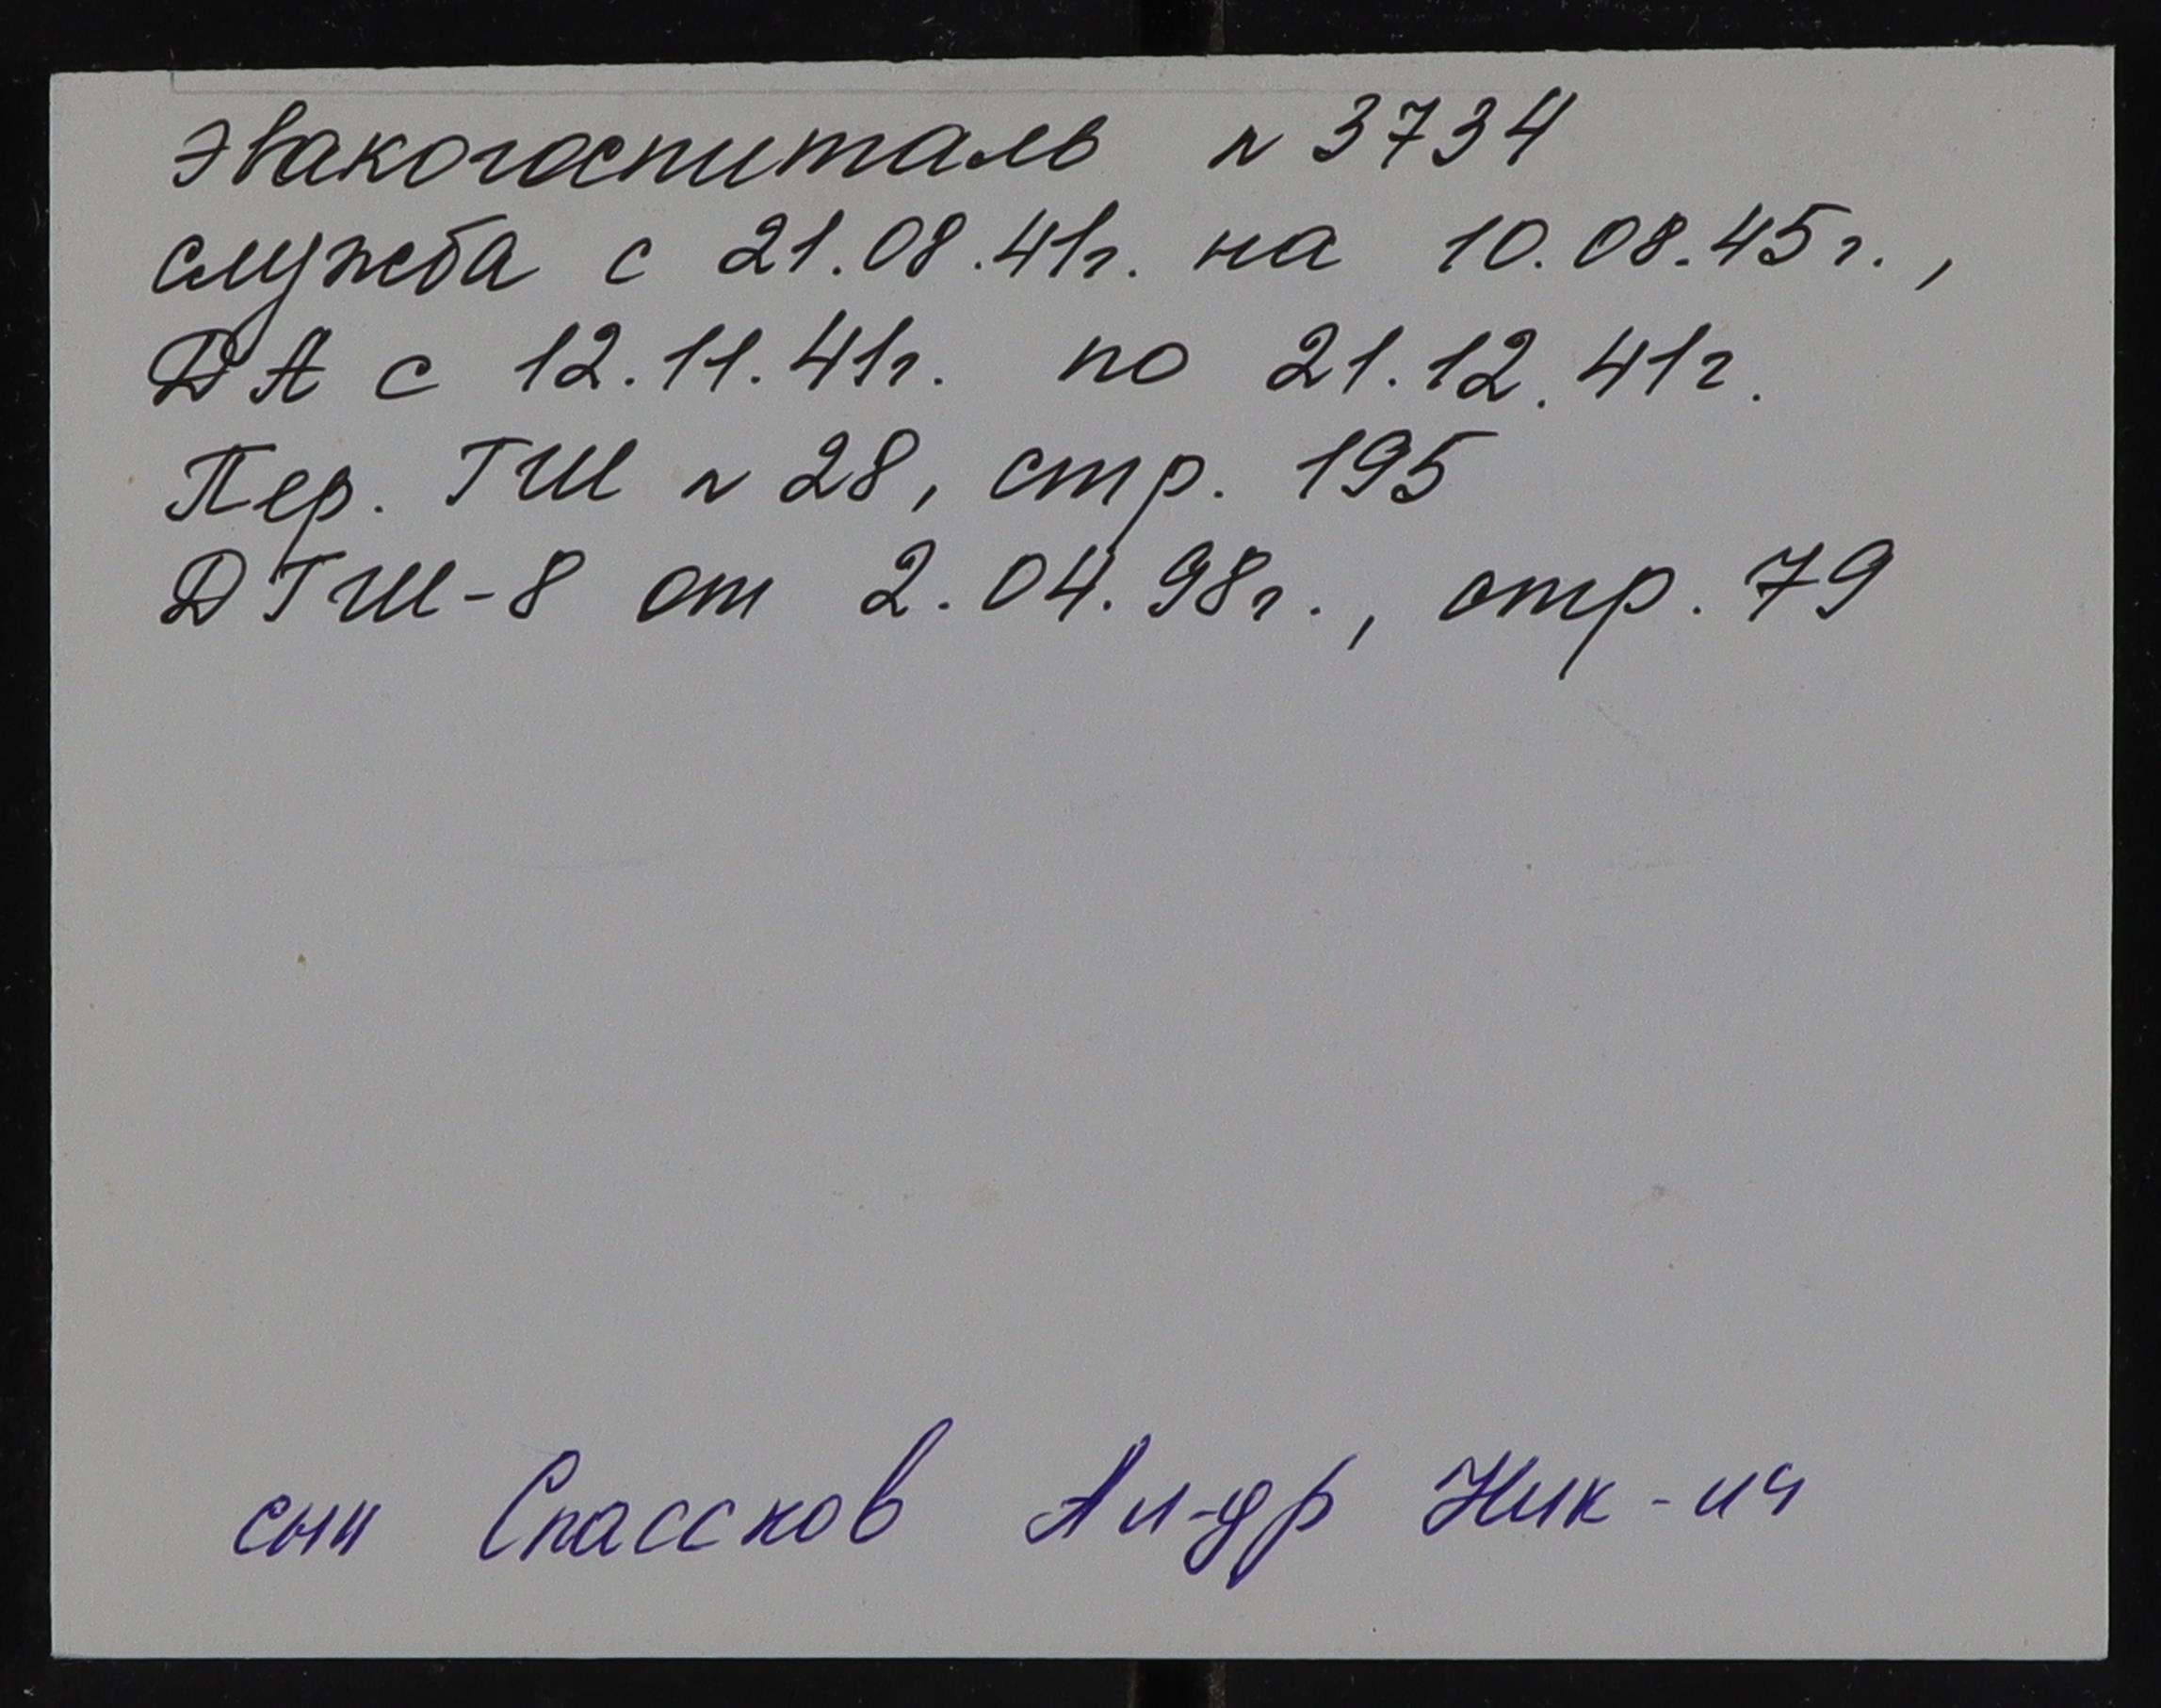 Эвакогоспиталь № 3734
служба с 21.08.41г. на 10.08.45г.,
ДА с 12.11.41г. по 21.12.41г.
Пер. ГШ № 28, стр. 195
ДГШ-8 от 2.04.98г., стр. 79
сын Спассков Ал-др Ник-ич